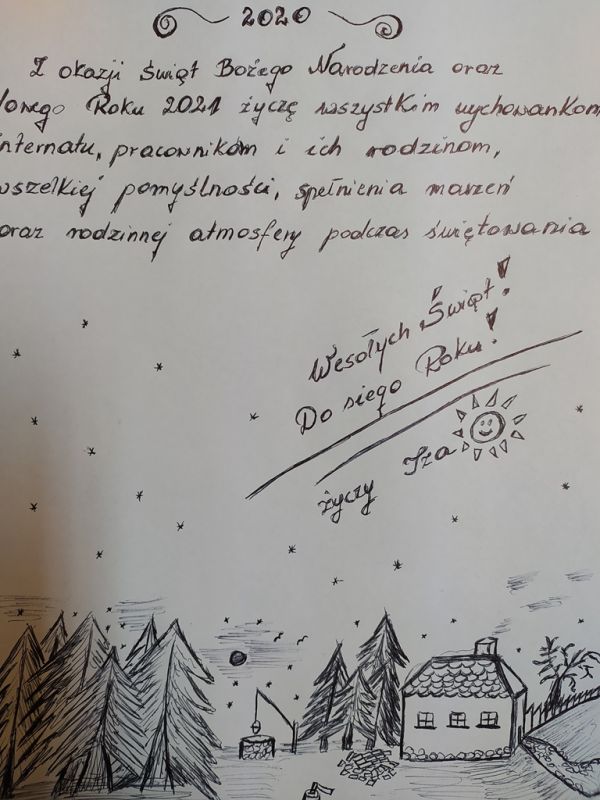 2020
Z okazji Świąt Bożego Narodzenia oraz
Nowego Roku 2021 życzę wszystkim wychowankom
internatu, pracownikom i ich rodzinom,
wszelkiej pomyślności, spełnienia marzeń
oraz rodzinnej atmosfery podczas świętowania
Wesołych Świąt!
Do siego Roku!
życzy Iza